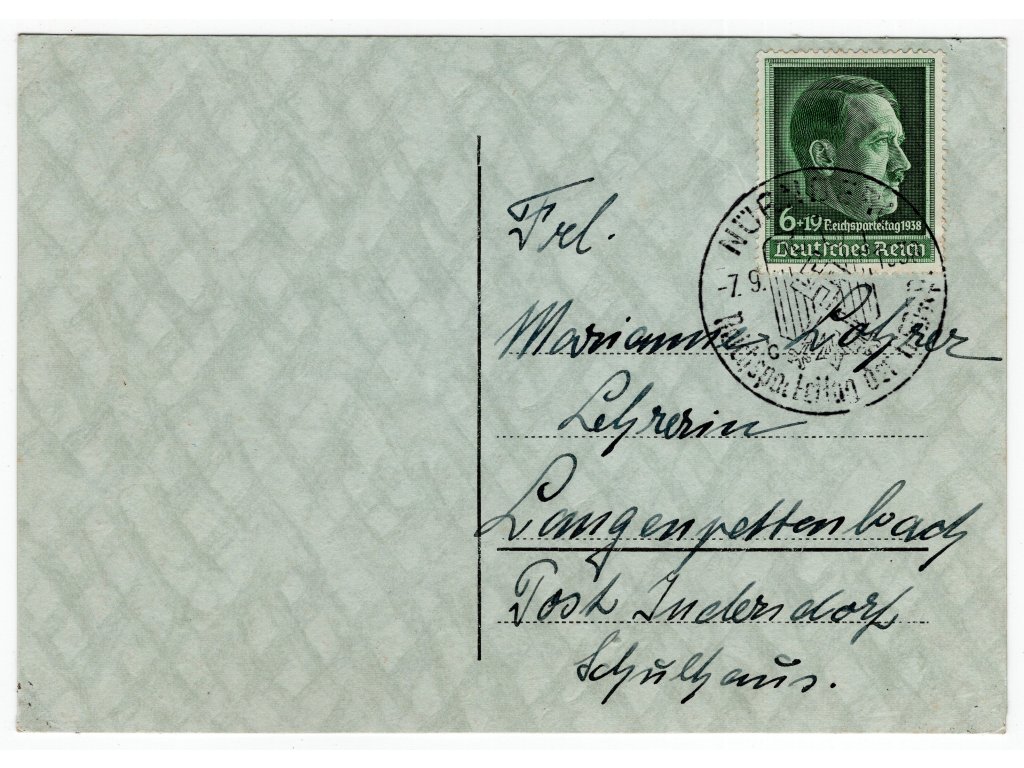 6+19 Reichsparteitag 1938
Deutsches Reich
NÜRNBERG
-7.9.
c
Reichsparteitag der NSDAP
Frl.
Marianne Lohrer
Lehrerin
Langenpettenbach
Post Indersdorf
Schulhaus.